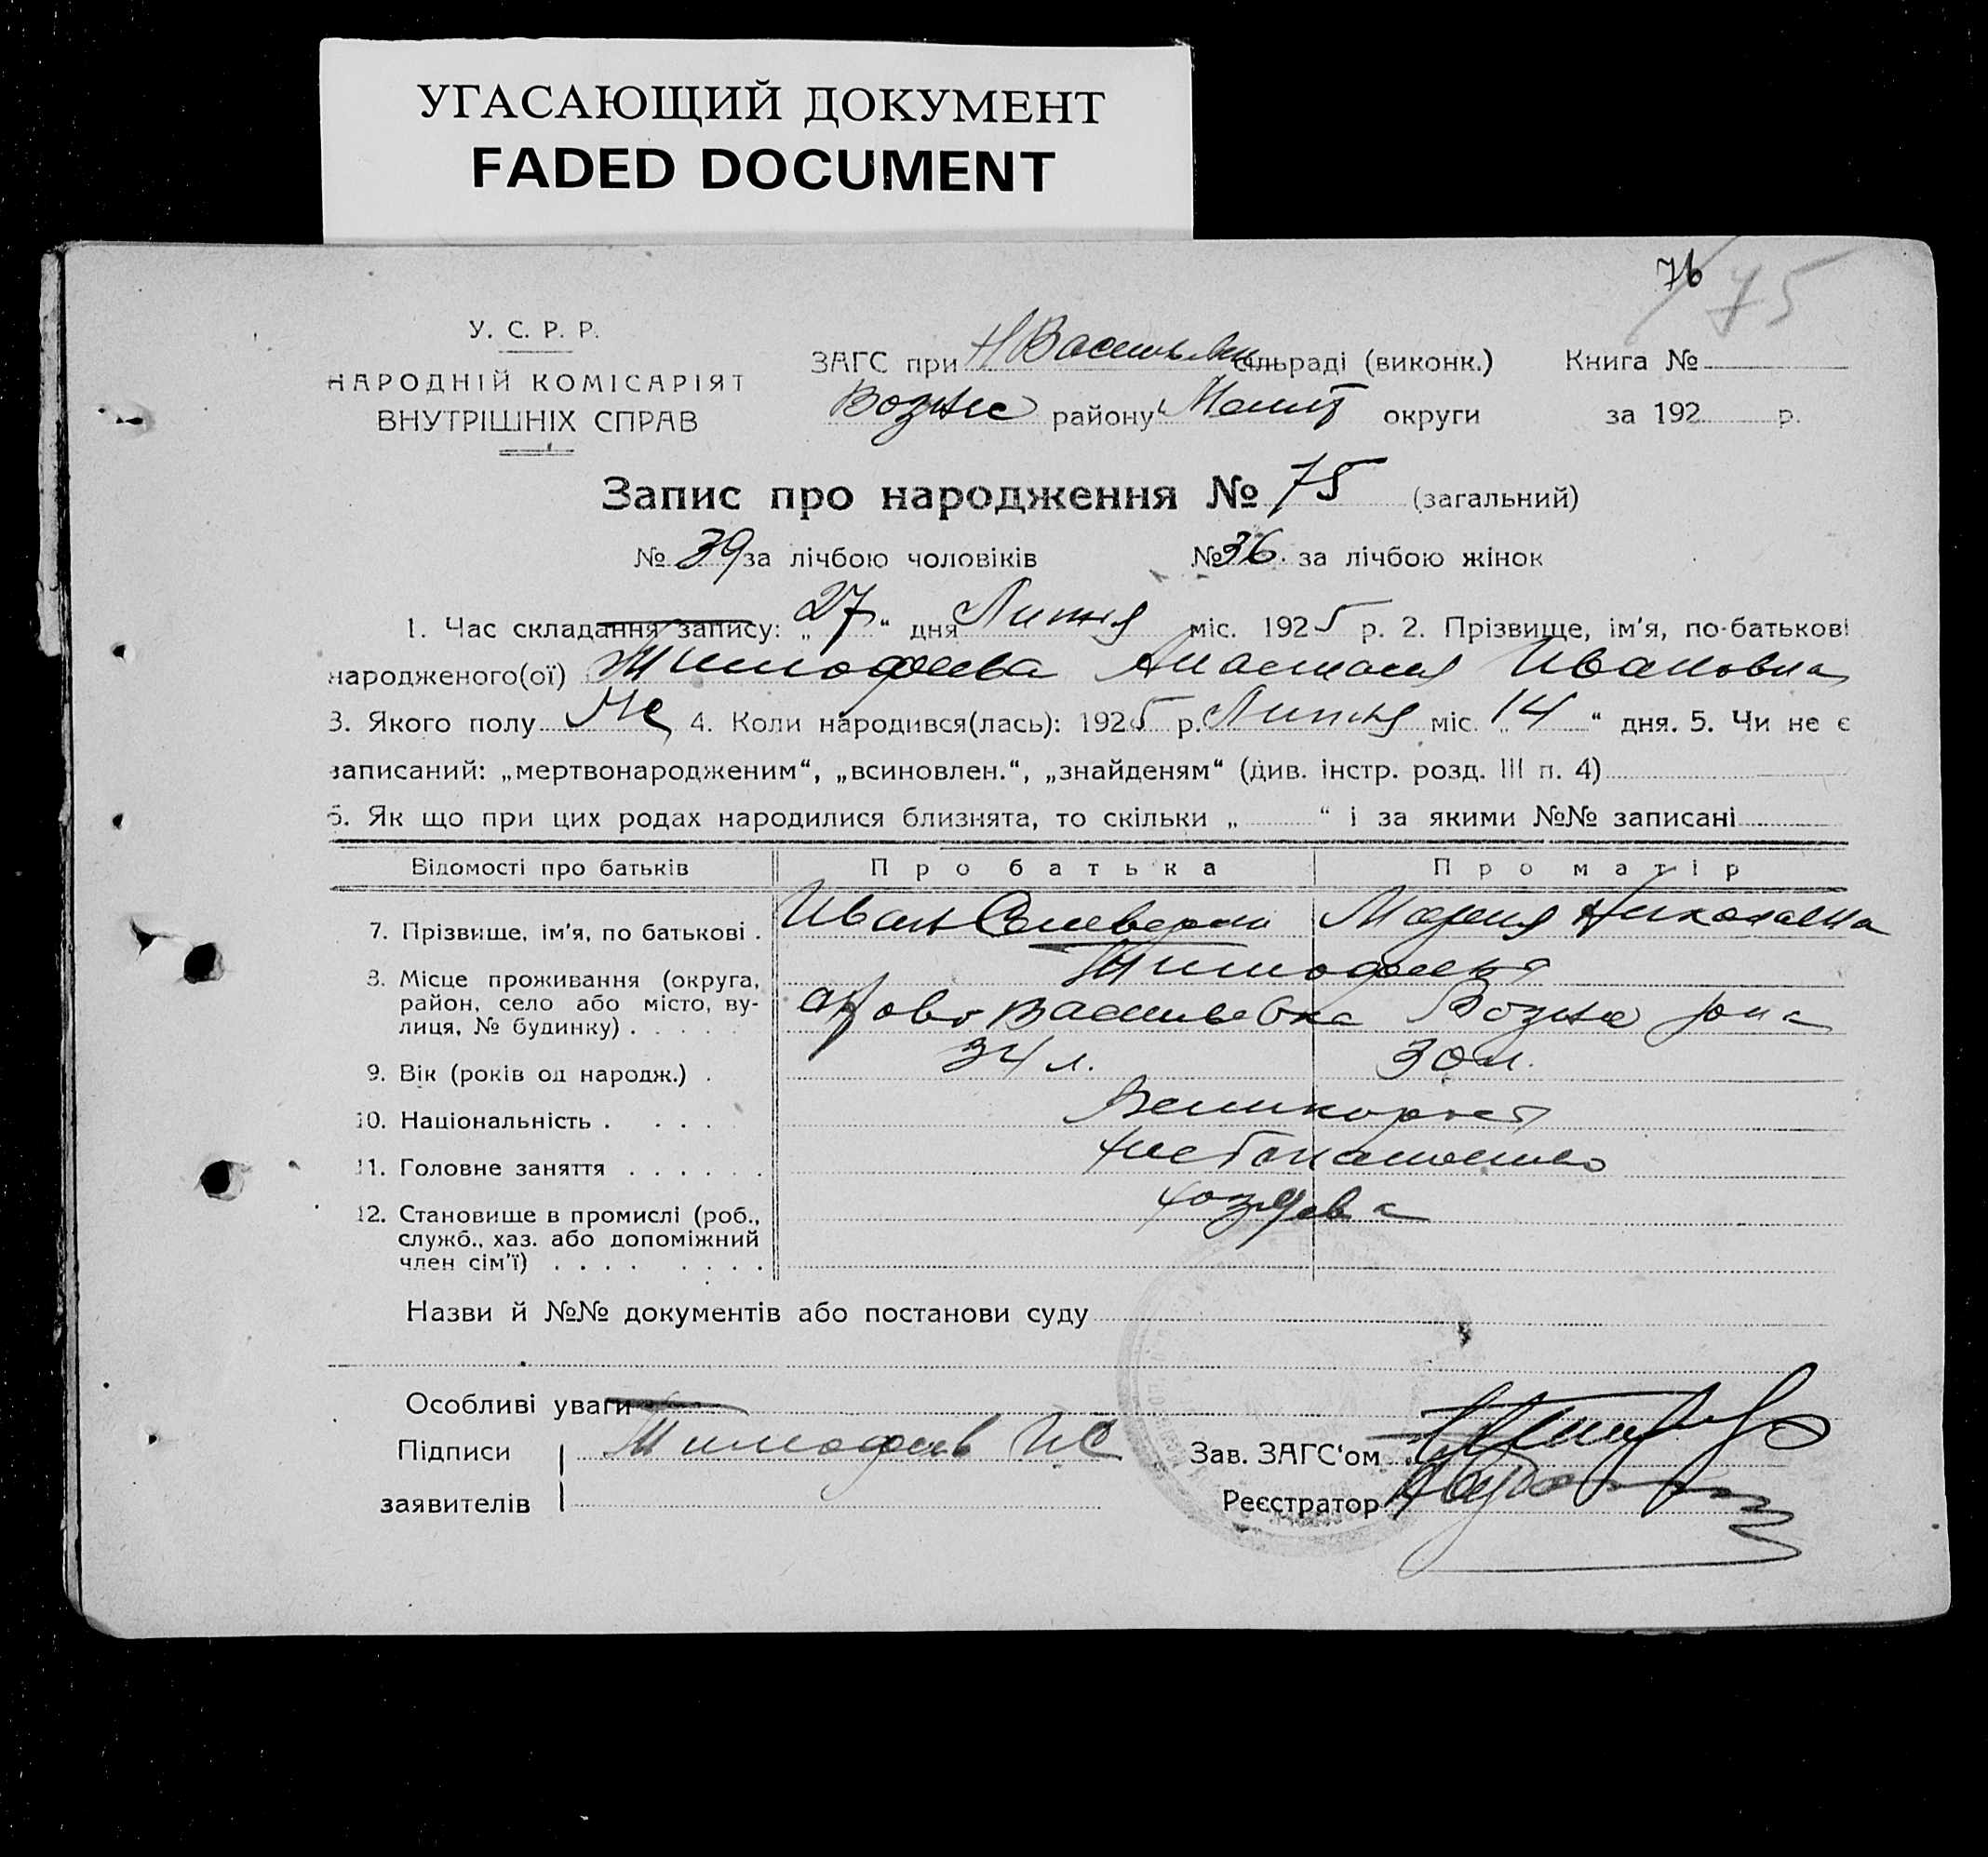 УГАСАЮЩИЙ ДОКУМЕНТ
FADED DOCUMENT
76 75
У. С. Р. Р.
НАРОДНІЙ КОМІСАРІЯТ
ВНУТРІШНІХ СПРАВ
ЗАГС при Н Васильевк. сільраді (виконк.) Книга №
Возне району Меліт округи за 192 р.
Запис про народження № 75 (загальний)
№ 39 за лічбою чоловіків № 36. за лічбою жінок
1. Час складання запису: „27“ дня Липня міс. 1925 р. 2. Прізвище, ім'я, по-батькові
народженого(ої) Тимофеева Анастасия Ивановна
3. Якого полу Же 4. Коли народився(лась): 1925 р. Липня міс. „14“ дня. 5. Чи не є
записаний: „мертвонародженим“, „всиновлен.“, „знайденям“ (див. інстр. розд. III п. 4)
6. Як що при цих родах народилися близнята, то скільки „ “ і за якими №№ записані
Відомості про батьків Про батька Про матір
7. Прізвище, ім'я, по батькові . Иван Мария Николаевна
Тимофеевы
8. Місце проживання (округа,
район, село або місто, ву-
лиця, № будинку) . Ново Васильевка Возне рна
9. Вік (років од народж.) . 34 л. 30 л.
10. Національність . Великорос
11. Головне заняття . Хлебопашество
12. Становище в промислі (роб.,
служб., хаз. або допоміжний
член сім'ї) . хозяева
Назви й №№ документів або постанови суду
Особливі уваги
Підписи Тимофеев И С Зав. ЗАГС'ом
заявителів Реєстратор